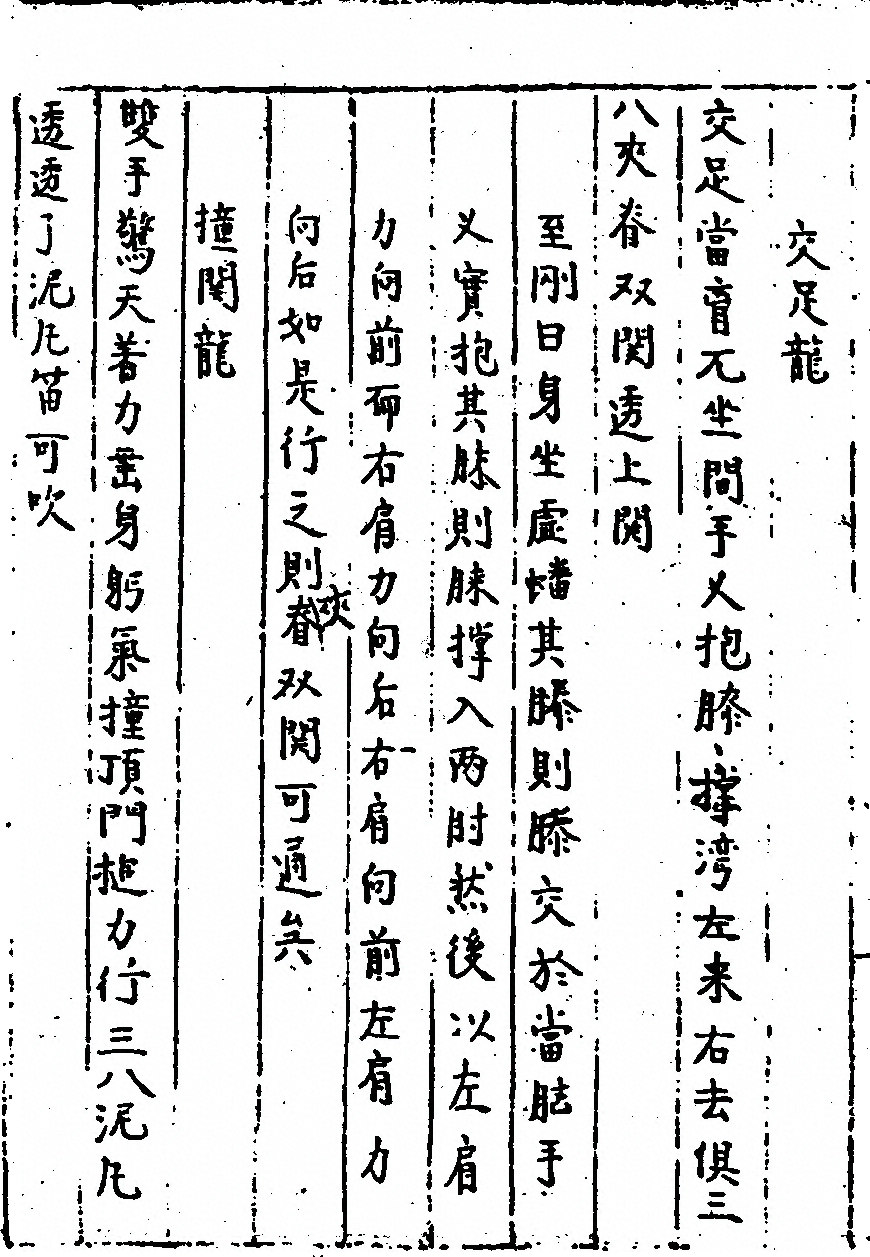 交足龍
交足當肓兀坐間手乂抱膝、撑湾左来右去俱三
八夾脊双関透上関
至刚日身坐虚蟠其膝則膝交於當胠手
乂實抱其膝則膝撑入两肘然後以左肩
力向前而右肩力向后右肩向前左肩力
向后如是行之則夾脊双関可通矣
撞関龍
雙手驚天着力
身躬氣撞頂門
力行三八泥凡
透透了泥凡笛可吹